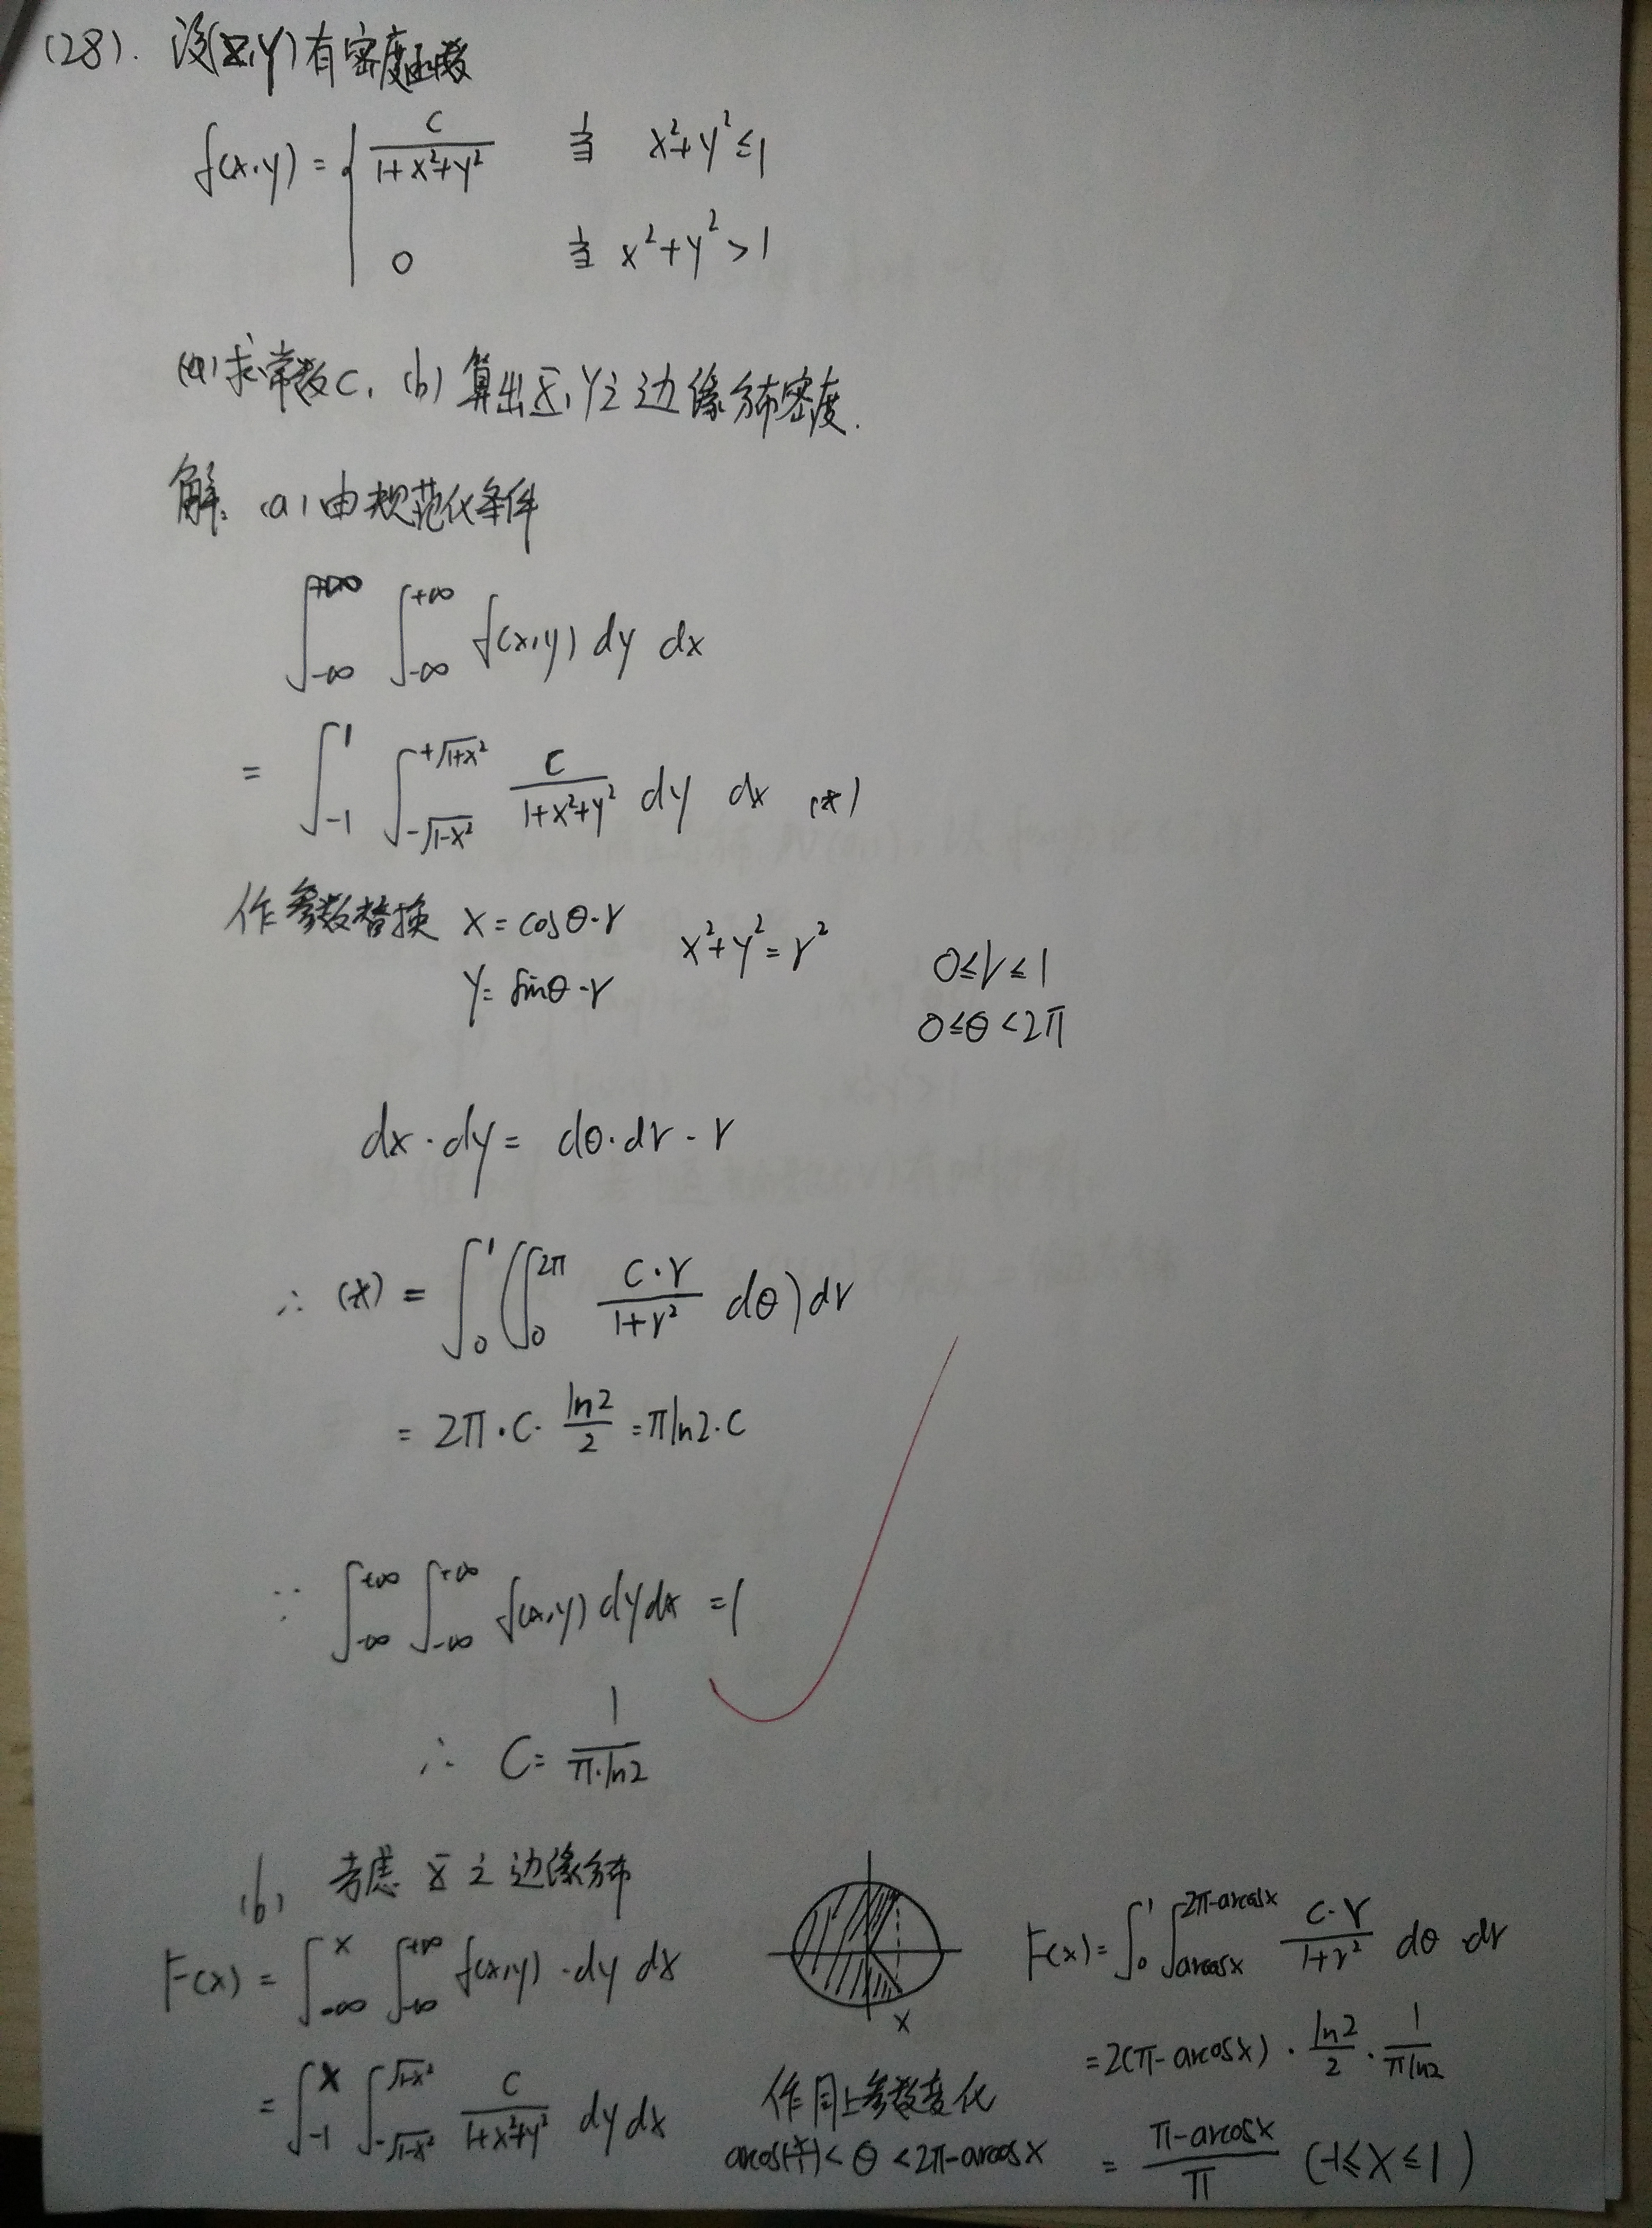 (28). 设(X,Y)有密度函数
f(x,y) = { c/(1+x²+y²) 当 x²+y²≤1
0 当 x²+y²>1
(a)求常数c, (b)算出X,Y之边缘分布密度.
解: (a)由规范化条件
∫_{-∞}^{+∞} ∫_{-∞}^{+∞} f(x,y) dy dx
= ∫_{-1}^{1} ∫_{-√(1-x²)}^{+√(1+x²)} c/(1+x²+y²) dy dx (*)
作参数替换 x = cosθ·r x²+y²=r² 0≤r≤1
y = sinθ·r 0≤θ<2π
dx·dy = dθ·dr·r
∴ (*) = ∫_0^1 (∫_0^{2π} c·r/(1+r²) dθ) dr
= 2π·c· ln2/2 = πln2·c
∵ ∫_{-∞}^{+∞} ∫_{-∞}^{+∞} f(x,y) dy dx = 1
∴ C = 1/(π·ln2)
(b) 考虑 X 之边缘分布
F(x) = ∫_{-∞}^{x} ∫_{-∞}^{+∞} f(x,y)·dy dx
= ∫_{-1}^{x} ∫_{-√(1-x²)}^{√(1-x²)} c/(1+x²+y²) dy dx
x
作同上参数变化
<θ<2π-arccosx
F(x) = ∫_0^1 ∫_{arccosx}^{2π-arccosx} c·r/(1+r²) dθ·dr
= 2(π-arccosx)· ln2/2 · 1/(πln2)
= (π-arccosx)/π (-1≤x≤1)